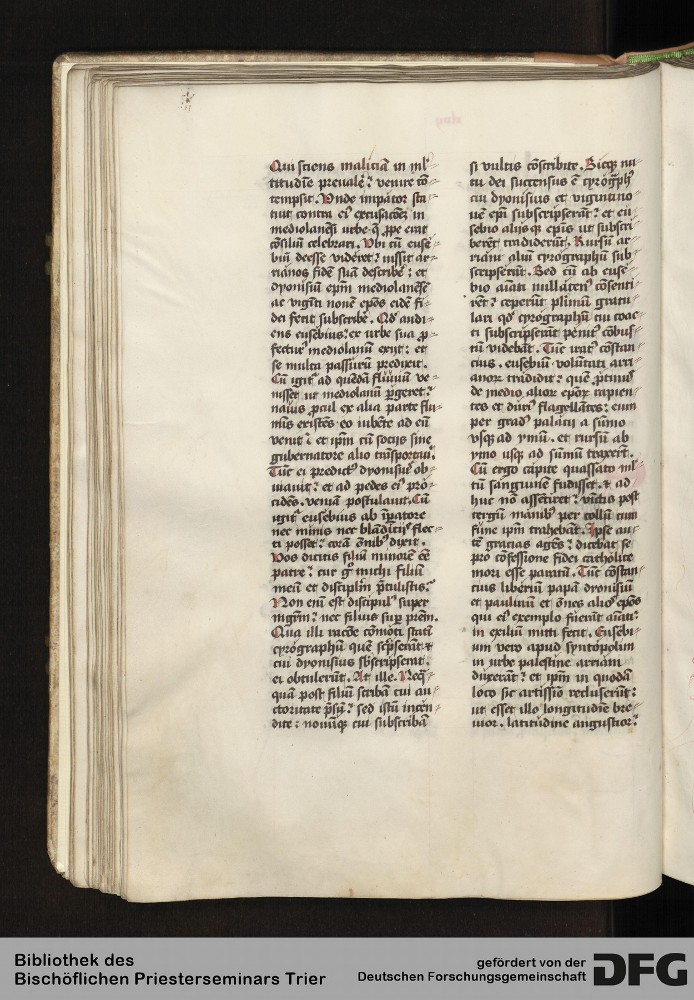 Qui sciens maliciā in ml̄
titudīe preualē? venire cō
tempsit. Vnde impator sta
tuit contra ei9 excusacōēz in
mediolanēsi urbe q̄ ꝓpe erat
cōsiliū celebrari. Vbi cū euse
biū deesse vidēret? iussit ar
rianos fidē suā describē: et
dyonisiū epm̄ mediolanēsē
ac viginti nouē epōs eidē fi
dei fecit subscribē. Qd̄ audi
ens eusebius: ex urbe sua ꝓ
fectur9 mediolanū exijt: et
se multa passurū predixit.
Cū igit᷑ ad quēdā fluuiū ve
nisset ut mediolanū ꝑgeret?
nauis ꝓcul ex alia parte flu
mīs existēs eo iubēte ad eū
venit: et ipm̄ cū socijs sine
gubernatore alio trāsportauit.
Tūc ei predict9 dyonisius ob
uiauit? et ad pedes ei9 pro
cidēs. veniā postulauit. Cū
igit᷑ eusebius ab īpatore
nec minis nec blādicijs flec
ti posset? corā ōnib9 dixit.
Vos dicitis filiū minorē ēē
patre? cur g̊ michi filiū
meū et disciplm̄ p̄tulistis?
Non enī est discipul9 super
mgr̄m? nec filius suꝑ prēm.
Qua illi racōe cōmoti statī
cyrographū quē sc̄pserāt &
cui dyonisius sb̄scripserat.
ei obtulerūt. At ille. Neq̄
quā post filiū scribā cui au
ctoritate p̄sū? sed istū incen
dite: nouūq̨ cui subscribā
si vultis cōscribite. Sicq̨ nu
tu dei succensus ē cyrogph9
cui dyonisius et vigintino
uē epī subscripserāt? et eu
sebio alijsq̨ epīs ut subscri
berēt tradiderūt. Rursū ar
riani aliū cyrographū sub
scripserūt. Sed cū ab euse
bio aīati nullaten9 cōsenti
rēt? ceperūt plīmū gratu
lari qd̄ cyrographū cui coac
ti subscripserāt penit9 cōbus
tū videbāt. Tūc irat9 cōstan
cius. eusebiū volūtati arri
anoꝝ tradidit? quē ꝓtinus
de medio alioꝝ epōꝝ rapien
tes et duri9 flagellātes: eum
per grad9 palacij a sūmo
vsq̨ ad ymū. et rursū ab
ymo usq̨ ad sūmū traxerūt.
Cū ergo capite quassato ml̄
tū sangwinē fudisset. & ad
huc nō assētiret? vīctis post
tergū manib9 per collū cum
fune ipm̄ trahebāt. Ipse au
tē gracias agēs? dicebat se
pro cōfessione fidei catholice
mori esse paratū. Tūc cōstan
cius liberiū papā dyonisiū
et paulinū et ōnes alios epōs
qui ei9 exemplo fuerāt aīati?
in exiliū mitti fecit. Eusebi
um vero apud syntopolim
in urbe palestine arriani
duxerāt? et ipm̄ in quodā
loco sic artissīo recluserūt:
ut esset illo longitudīe bre
uior. latitudine angustior?
Bibliothek des
Bischöflichen Priesterseminars Trier
gefördert von der
Deutschen Forschungsgemeinschaft
DFG